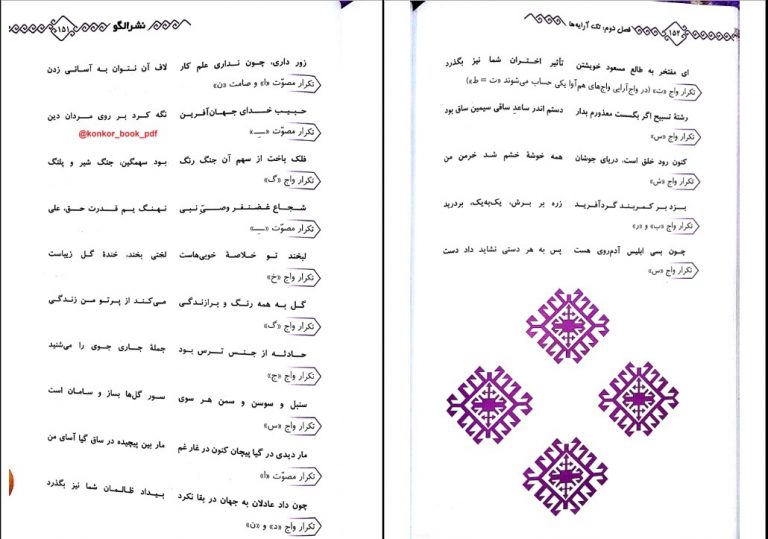 نشرالگو
۱۵۱
زور داری، چون نداری علم کار لاف آن نتوان به آسانی زدن
تکرار مصوّت «ا» و صامت «ن»
حبیب خدای جهان‌آفرین نگه کرد بر روی مردان دین
تکرار مصوّت «ـِـ»
@konkor_book_pdf
فلک باخت از سهم آن جنگ رنگ بود سهمگین، جنگ شیر و پلنگ
تکرار واج «گ»
شجاع غضنفر وصیّ نبی نهنگ یم قدرت حق، علی
تکرار مصوّت «ـِـ»
لبخند تو خلاصهٔ خوبی‌هاست لختی بخند، خندهٔ گل زیباست
تکرار واج «خ»
گل به همه رنگ و برازندگی می‌کند از پرتو من زندگی
تکرار واج «گ»
حادثه از جنس ترس بود جملهٔ جاری جوی را می‌شنید
تکرار واج «ج»
سنبل و سوسن و سمن هر سوی سور گل‌ها بساز و سامان است
تکرار واج «س»
مار دیدی در گیا پیچان کنون در غار غم مار بین پیچیده در ساق گیا آسای من
تکرار مصوّت «ا»
چون داد عادلان به جهان در بقا نکرد بیداد ظالمان شما نیز بگذرد
تکرار واج «د» و «ن»
فصل دوم: تک آرایه‌ها
۱۵۲
ای مفتخر به طالع مسعود خویشتن تأثیر اختران شما نیز بگذرد
تکرار واج «ت» (در واج‌آرایی واج‌های هم‌آوا یکی حساب می‌شوند «ت = ط»)
رشتهٔ تسبیح اگر بگسست معذورم بدار دستم اندر ساعد ساقی سیمین ساق بود
تکرار واج «س»
کنون رود خلق است، دریای جوشان همه خوشهٔ خشم شد خرمن من
تکرار واج «ش»
بزد بر کمربند گردآفرید زره بر برش، یک‌به‌یک، بردرید
تکرار واج «ب» و «ر»
چون بسی ابلیس آدم‌روی هست پس به هر دستی نشاید داد دست
تکرار واج «س»